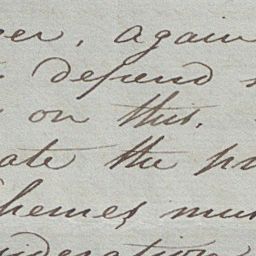 er, again
defend
on this.
ate the
hemes mus
ideration